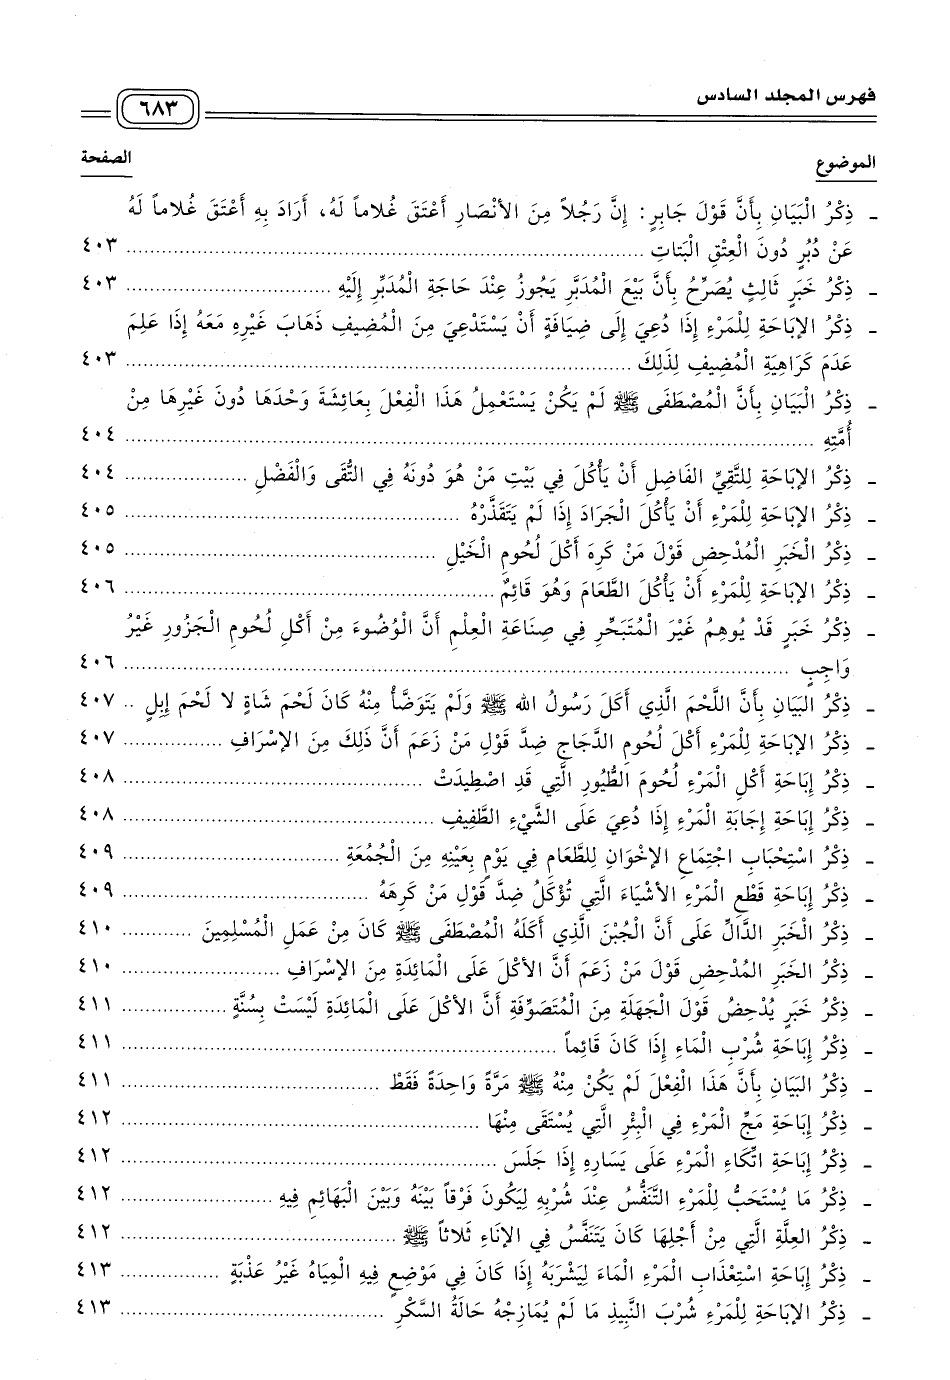 فهرس المجلد السادس
٦٨٣
الموضوع الصفحة
- ذِكْرُ الْبَيَانِ بِأَنَّ قَوْلَ جَابِرٍ: إِنَّ رَجُلاً مِنَ الأَنْصَارِ أَعْتَقَ غُلاماً لَهُ، أَرَادَ بِهِ أَعْتَقَ غُلاماً لَهُ
عَنْ دُبُرٍ دُونَ الْعِتْقِ الْبَتَاتِ ........ ٤٠٣
- ذِكْرُ خَبَرٍ ثَالِثٍ يُصَرِّحُ بِأَنَّ بَيْعَ الْمُدَبَّرِ يَجُوزُ عِنْدَ حَاجَةِ الْمُدَبِّرِ إِلَيْهِ ........ ٤٠٣
- ذِكْرُ الإِبَاحَةِ لِلْمَرْءِ إِذَا دُعِيَ إِلَى ضِيَافَةٍ أَنْ يَسْتَدْعِيَ مِنَ الْمُضِيفِ ذَهَابَ غَيْرِهِ مَعَهُ إِذَا عَلِمَ
عَدَمَ كَرَاهِيَةِ الْمُضِيفِ لِذَلِكَ ........ ٤٠٣
- ذِكْرُ الْبَيَانِ بِأَنَّ الْمُصْطَفَى ﷺ لَمْ يَكُنْ يَسْتَعْمِلُ هَذَا الْفِعْلَ بِعَائِشَةَ وَحْدَهَا دُونَ غَيْرِهَا مِنْ
أُمَّتِهِ ........ ٤٠٤
- ذِكْرُ الإِبَاحَةِ لِلتَّقِيِّ الفَاضِلِ أَنْ يَأْكُلَ فِي بَيْتِ مَنْ هُوَ دُونَهُ فِي التُّقَى وَالْفَضْلِ ........ ٤٠٤
- ذِكْرُ الإِبَاحَةِ لِلْمَرْءِ أَنْ يَأْكُلَ الْجَرَادَ إِذَا لَمْ يَتَقَذَّرْهُ ........ ٤٠٥
- ذِكْرُ الْخَبَرِ الْمُدْحِضِ قَوْلَ مَنْ كَرِهَ أَكْلَ لُحُومِ الْخَيْلِ ........ ٤٠٥
- ذِكْرُ الإِبَاحَةِ لِلْمَرْءِ أَنْ يَأْكُلَ الطَّعَامَ وَهُوَ قَائِمٌ ........ ٤٠٦
- ذِكْرُ خَبَرٍ قَدْ يُوهِمُ غَيْرَ الْمُتَبَحِّرِ فِي صِنَاعَةِ الْعِلْمِ أَنَّ الْوُضُوءَ مِنْ أَكْلِ لُحُومِ الْجَزُورِ غَيْرُ
وَاجِبٍ ........ ٤٠٦
- ذِكْرُ البَيَانِ بِأَنَّ اللَّحْمَ الَّذِي أَكَلَ رَسُولُ الله ﷺ وَلَمْ يَتَوَضَّأْ مِنْهُ كَانَ لَحْمَ شَاةٍ لا لَحْمَ إِبِلٍ .. ٤٠٧
- ذِكْرُ الإِبَاحَةِ لِلْمَرْءِ أَكْلَ لُحُومِ الدَّجَاجِ ضِدَّ قَوْلِ مَنْ زَعَمَ أَنَّ ذَلِكَ مِنَ الإِسْرَافِ ........ ٤٠٧
- ذِكْرُ إِبَاحَةِ أَكْلِ المَرْءِ لُحُومَ الطُّيُورِ الَّتِي قَدِ اصْطِيدَتْ ........ ٤٠٨
- ذِكْرُ إِبَاحَةِ إِجَابَةِ الْمَرْءِ إِذَا دُعِيَ عَلَى الشَّيْءِ الطَّفِيفِ ........ ٤٠٨
- ذِكْرُ اسْتِحْبَابِ اجْتِمَاعِ الإِخْوَانِ لِلطَّعَامِ فِي يَوْمٍ بِعَيْنِهِ مِنَ الْجُمُعَةِ ........ ٤٠٩
- ذِكْرُ إِبَاحَةِ قَطْعِ الْمَرْءِ الأَشْيَاءَ الَّتِي تُؤْكَلُ ضِدَّ قَوْلِ مَنْ كَرِهَهُ ........ ٤٠٩
- ذِكْرُ الْخَبَرِ الدَّالِّ عَلَى أَنَّ الْجُبْنَ الَّذِي أَكَلَهُ الْمُصْطَفَى ﷺ كَانَ مِنْ عَمَلِ الْمُسْلِمِينَ ........ ٤١٠
- ذِكْرُ الخَبَرِ المُدْحِضِ قَوْلَ مَنْ زَعَمَ أَنَّ الأَكْلَ عَلَى الْمَائِدَةِ مِنَ الإِسْرَافِ ........ ٤١٠
- ذِكْرُ خَبَرٍ يُدْحِضُ قَوْلَ الْجَهَلَةِ مِنَ الْمُتَصَوِّفَةِ أَنَّ الأَكْلَ عَلَى الْمَائِدَةِ لَيْسَتْ بِسُنَّةٍ ........ ٤١١
- ذِكْرُ إِبَاحَةِ شُرْبِ الْمَاءِ إِذَا كَانَ قَائِماً ........ ٤١١
- ذِكْرُ البَيَانِ بِأَنَّ هَذَا الْفِعْلَ لَمْ يَكُنْ مِنْهُ ﷺ مَرَّةً وَاحِدَةً فَقَطْ ........ ٤١١
- ذِكْرُ إِبَاحَةِ مَجِّ الْمَرْءِ فِي الْبِئْرِ الَّتِي يُسْتَقَى مِنْهَا ........ ٤١٢
- ذِكْرُ إِبَاحَةِ اتِّكَاءِ الْمَرْءِ عَلَى يَسَارِهِ إِذَا جَلَسَ ........ ٤١٢
- ذِكْرُ مَا يُسْتَحَبُّ لِلْمَرْءِ التَّنَفُّسُ عِنْدَ شُرْبِهِ لِيَكُونَ فَرْقاً بَيْنَهُ وَبَيْنَ الْبَهَائِمِ فِيهِ ........ ٤١٢
- ذِكْرُ العِلَّةِ الَّتِي مِنْ أَجْلِهَا كَانَ يَتَنَفَّسُ فِي الإِنَاءِ ثَلاثاً ﷺ ........ ٤١٢
- ذِكْرُ إِبَاحَةِ اسْتِعْذَابِ الْمَرْءِ الْمَاءَ لِيَشْرَبَهُ إِذَا كَانَ فِي مَوْضِعٍ فِيهِ الْمِيَاهُ غَيْرُ عَذْبَةٍ ........ ٤١٣
- ذِكْرُ الإِبَاحَةِ لِلْمَرْءِ شُرْبَ النَّبِيذِ مَا لَمْ يُمَازِجْهُ حَالَةُ السَّكْرِ ........ ٤١٣